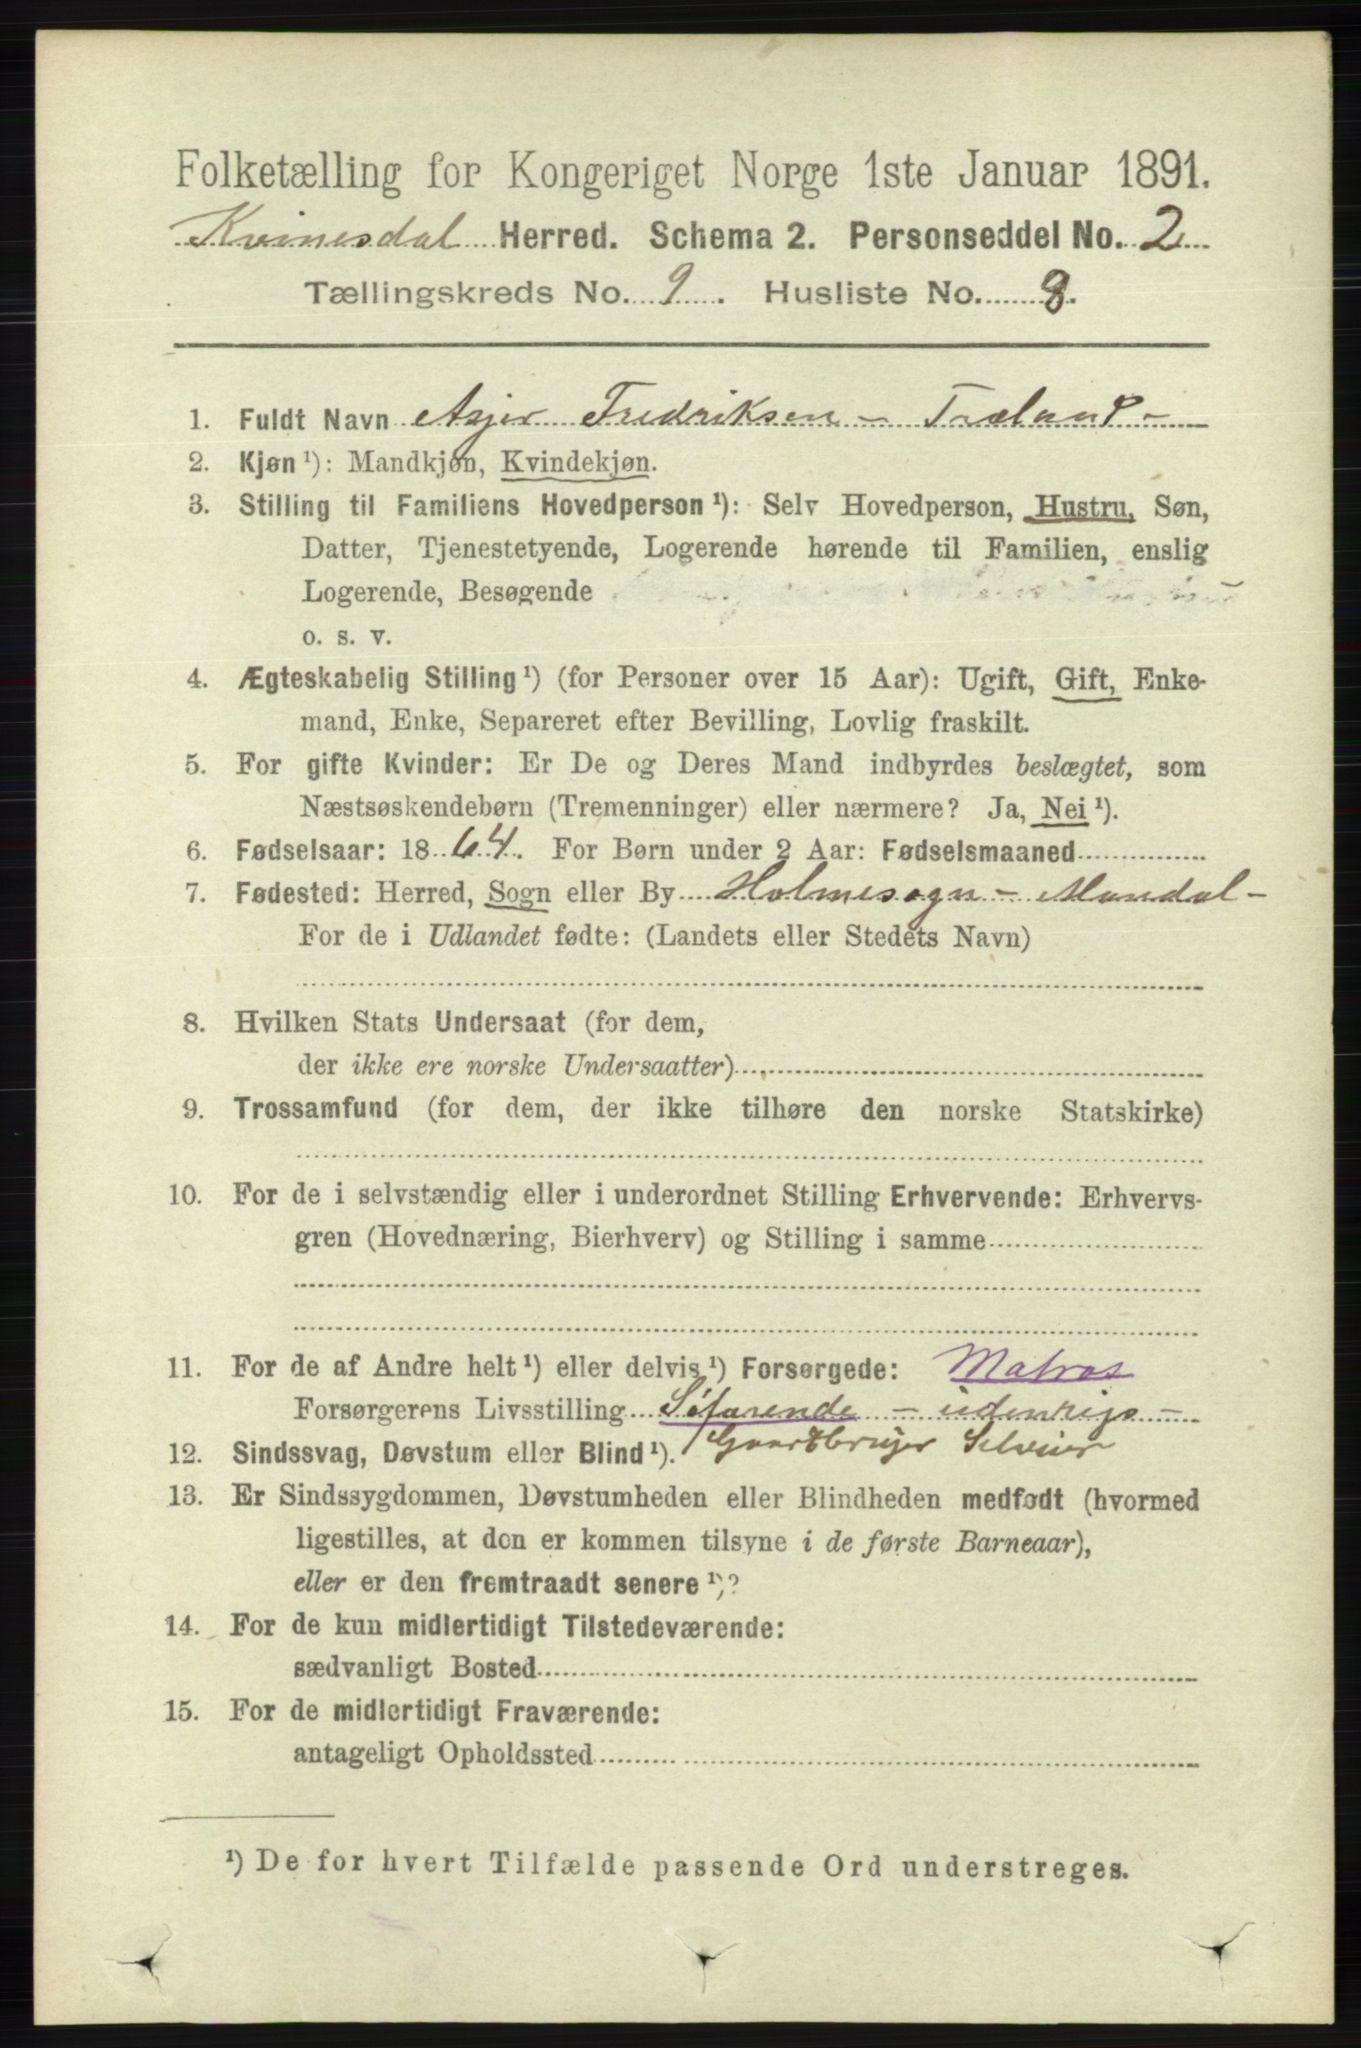 Folketælling for Kongeriget Norge 1ste Januar 1891.
Kvinesdal Herred. Schema 2. Personseddel No. 2
Tællingskreds No. 9. Husliste No. 8.
1. Fuldt Navn Asjer Fredriksen - Træland -
2. Kjøn ¹): Mandkjøn, Kvindekjøn.
3. Stilling til Familiens Hovedperson ¹): Selv Hovedperson, Hustru, Søn,
Datter, Tjenestetyende, Logerende hørende til Familien, enslig
Logerende, Besøgende
o. s. v.
4. Ægteskabelig Stilling ¹) (for Personer over 15 Aar): Ugift, Gift, Enke-
mand, Enke, Separeret efter Bevilling, Lovlig fraskilt.
5. For gifte Kvinder: Er De og Deres Mand indbyrdes beslægtet, som
Næstsøskendebørn (Tremenninger) eller nærmere? Ja, Nei ¹).
6. Fødselsaar: 1864. For Børn under 2 Aar: Fødselsmaaned
7. Fødested: Herred, Sogn eller By Holmesogn - Mandal -
For de i Udlandet fødte: (Landets eller Stedets Navn)
8. Hvilken Stats Undersaat (for dem,
der ikke ere norske Undersaatter)
9. Trossamfund (for dem, der ikke tilhøre den norske Statskirke)
10. For de i selvstændig eller i underordnet Stilling Erhvervende: Erhvervs-
gren (Hovednæring, Bierhverv) og Stilling i samme
11. For de af Andre helt ¹) eller delvis ¹) Forsørgede: Matros
Forsørgerens Livsstilling Söfarende - udenrigs -
12. Sindssvag, Døvstum eller Blind ¹). Gaardbruger Selveier
13. Er Sindssygdommen, Døvstumheden eller Blindheden medfødt (hvormed
ligestilles, at den er kommen tilsyne i de første Barneaar),
eller er den fremtraadt senere ¹)?
14. For de kun midlertidigt Tilstedeværende:
sædvanligt Bosted
15. For de midlertidigt Fraværende:
antageligt Opholdssted
¹) De for hvert Tilfælde passende Ord understreges.